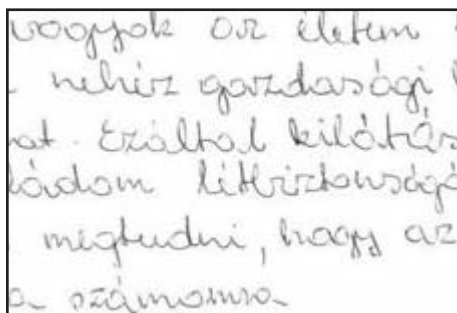 vagyok az életem
nehéz gazdasági
at. Ezáltal kilátás
ládom létbiztonságá
megtudni, hogy az
a számomra